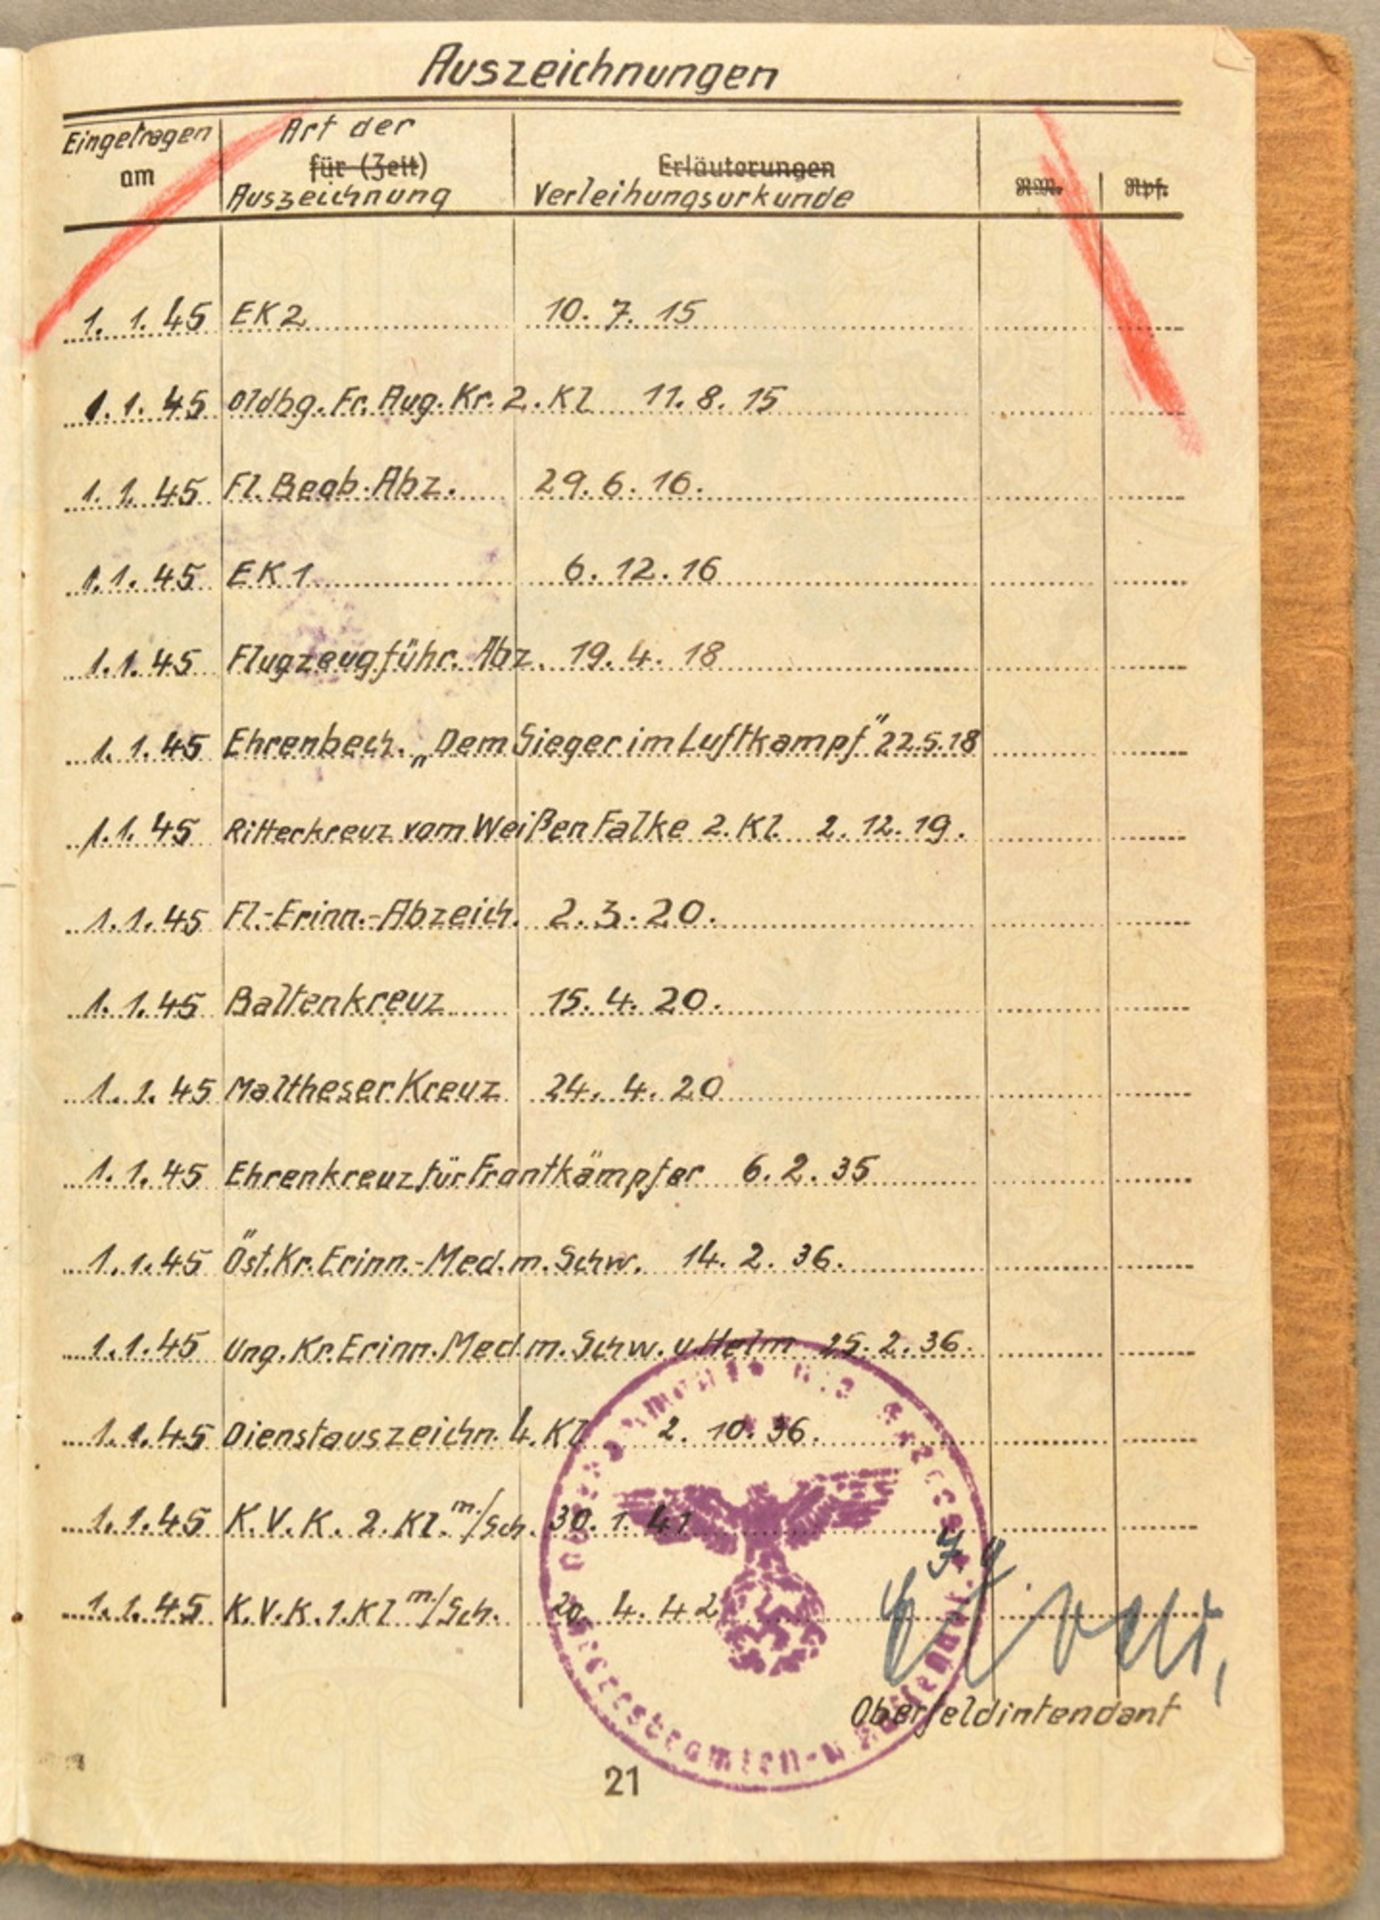 Auszeichnungen
Eingetragen am
Art der
für (Zeit)
Auszeichnung
Erläuterungen
Verleihungsurkunde
RM.
Rpf.
1. 1. 45 EK 2 10. 7. 15
1. 1. 45 Oldbg. Fr. Aug. Kr. 2. Kl 11. 8. 15
1. 1. 45 Fl. Beob. Abz. 29. 6. 16.
1. 1. 45 EK 1 6. 12. 16
1. 1. 45 Flugzeugführ. Abz. 19. 4. 18
1. 1. 45 Ehrenbech. „Dem Sieger im Luftkampf“ 22.5.18
1. 1. 45 Ritterkreuz vom Weißen Falke 2. Kl. 2. 12. 19.
1. 1. 45 Fl.-Erinn.-Abzeich. 2. 3. 20.
1. 1. 45 Baltenkreuz 15. 4. 20.
1. 1. 45 Maltheser Kreuz 24. 4. 20
1. 1. 45 Ehrenkreuz für Frontkämpfer 6. 2. 35
1. 1. 45 Öst. Kr. Erinn.-Med. m. Schw. 14. 2. 36.
1. 1. 45 Ung. Kr. Erinn. Med. m. Schw. u. Helm 25. 2. 36.
1. 1. 45 Dienstauszeichn. 4. Kl. 2. 10. 36.
1. 1. 45 K. V. K. 2. Kl. m/Sch. 30. 1. 41
1. 1. 45 K. V. K. 1. Kl m/Sch. 20. 4. 42
Oberfeldintendant
21